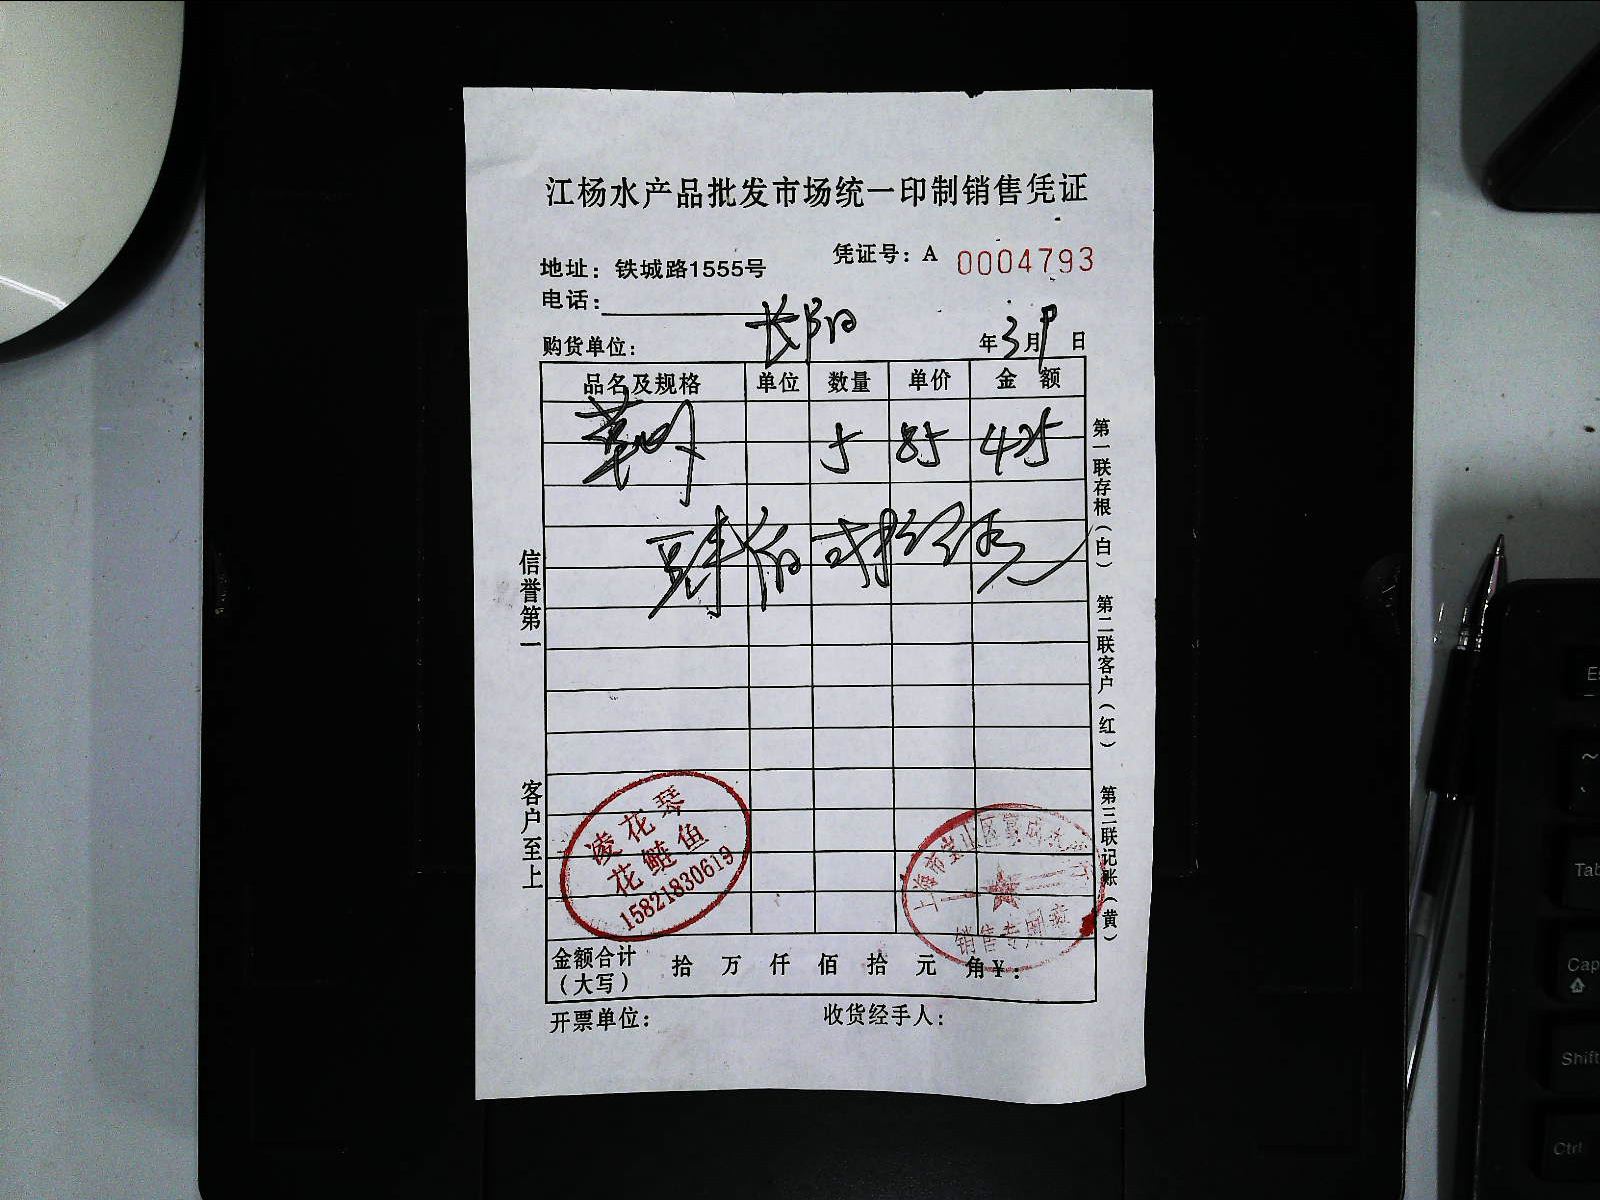 江杨水产品批发市场统一印制销售凭证
凭证号：A 0004793
地址：铁城路1555号
电话：
购货单位： 长阳 年3月9日
品名及规格 单位 数量 单价 金额
5 85 425
肆佰贰拾伍元
信誉第一
客户至上
第一联存根（白）
第二联客户（红）
第三联记账（黄）
凌花琴
花鲢鱼
15821830619
上海市宝山区
销售专用章
金额合计（大写） 拾 万 仟 佰 拾 元 角 ¥：
开票单位： 收货经手人：